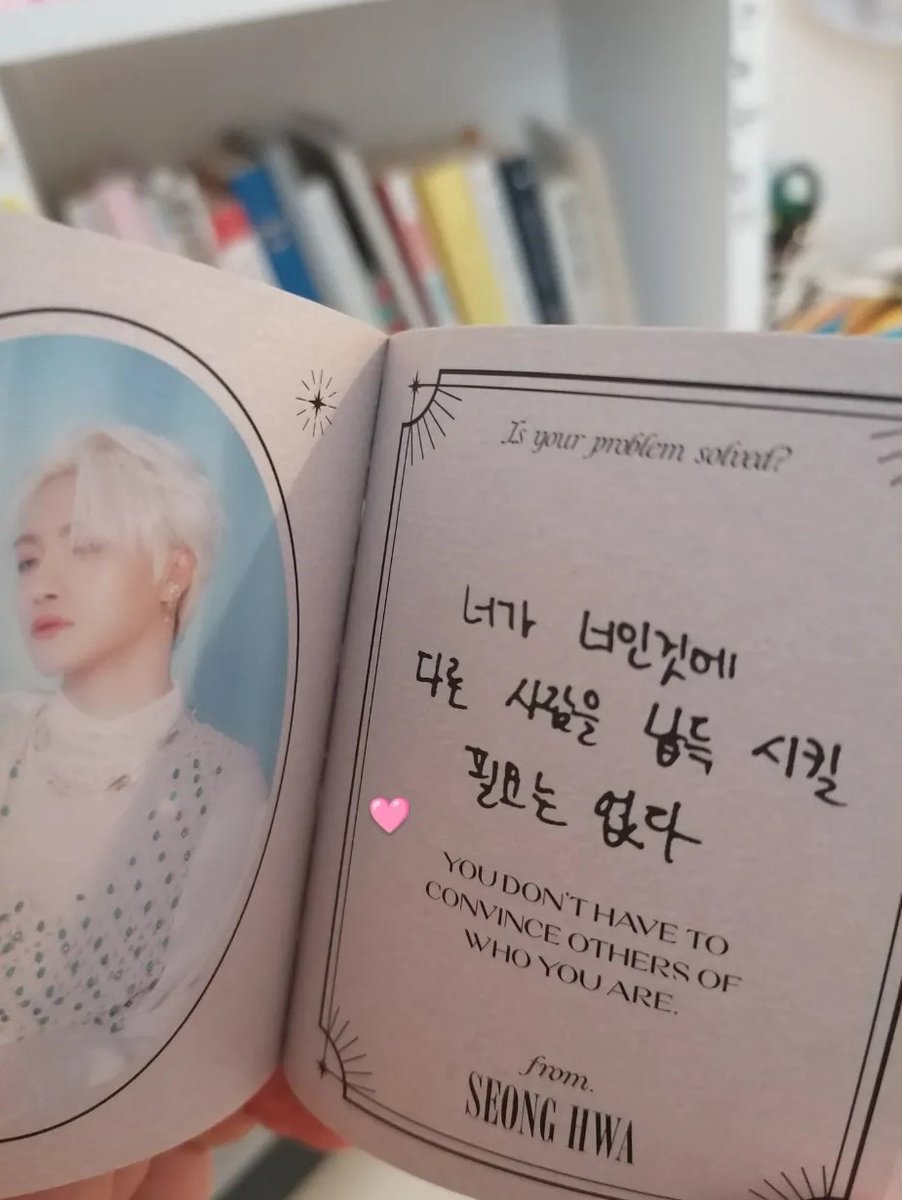 Is your problem solved?
너가 너인것에
다른 사람을 납득 시킬
필요는 없다
YOU DON'T HAVE TO
CONVINCE OTHERS OF
WHO YOU ARE.
from.
SEONG HWA